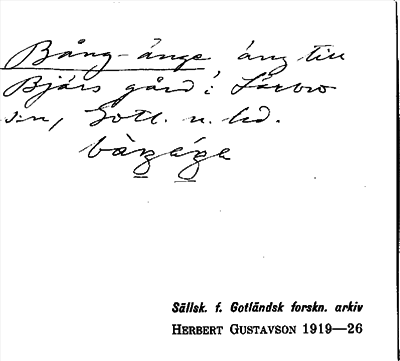 Bång-änge, äng till
Bjärs gård i Lärbro
sn, Gotl. n. hd.
Sällsk. f. Gotländsk forskn. arkiv
HERBERT GUSTAVSON 1919—26